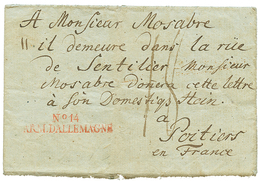 A Monsieur Mosabre
il demeure dans la rüe
de Sentilier Monsieur
Mosabre donera cette lettre
à Son Domestiqs Stein
à
Poitiers
en France
No 14
ARM. D'ALLEMAGNE